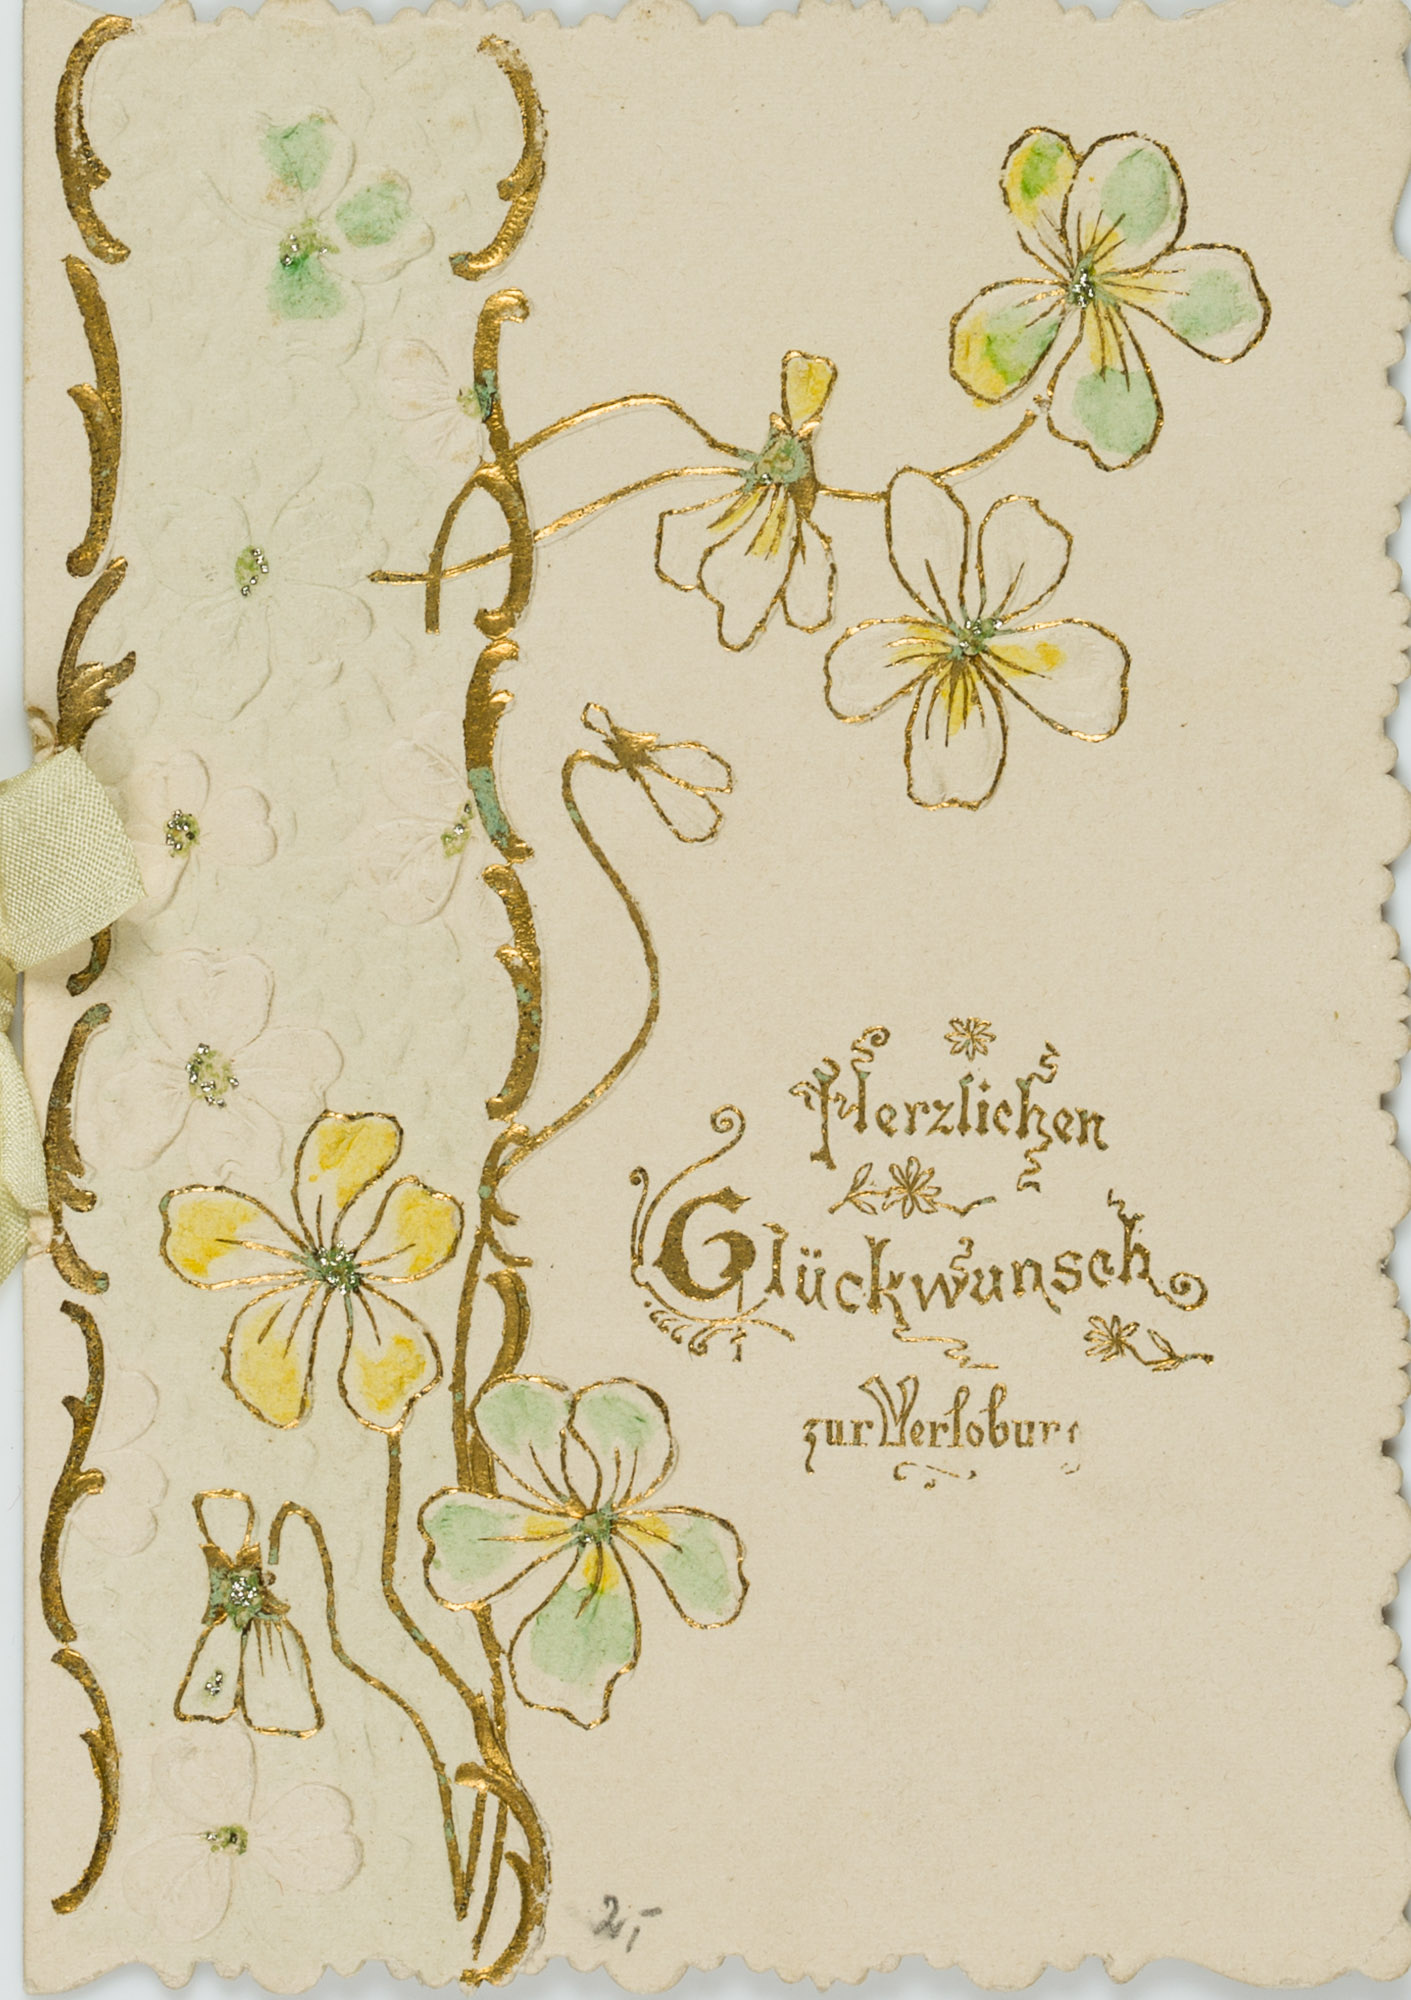 Herzlichen
Glückwunsch
zur Verlobung
2,-